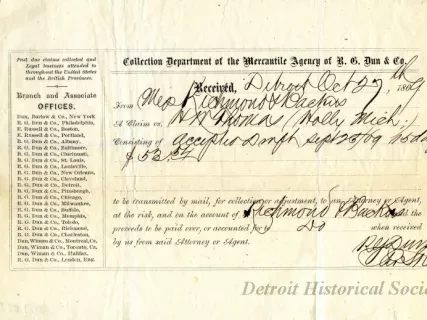 Past due claims collected and
Legal business attended to
throughout the United States
and the British Provinces.
Branch and Associate
OFFICES.
Dun, Barlow & Co., New York
R. G. Dun & Co., Philadelphia,
E. Russell & Co., Boston,
E. Russell & Co., Portland,
R. G. Dun & Co., Albany,
R. G. Dun & Co., Baltimore,
R. G. Dun & Co., Cincinnati,
R. G. Dun & Co., St. Louis,
R. G. Dun & Co., Louisville,
R. G. Dun & Co., New Orleans,
R. G. Dun & Co., Cleveland,
R. G. Dun & Co., Detroit,
R. G. Dun & Co., Pittsburgh,
R. G. Dun & Co., Chicago,
R. G. Dun & Co., Milwaukee,
R. G. Dun & Co., Buffalo,
R. G. Dun & Co., Memphis,
R. G. Dun & Co., Toledo,
R. G. Dun & Co., Richmond,
R. G. Dun & Co., Charleston,
Dun, Wiman & Co., Montreal, Ca.
Dun, Wiman & Co., Toronto, Ca.
Dun, Wiman & Co., Halifax,
R. G. Dun & Co., London, Eng.
Collection Department of the Mercantile Agency of R. G. Dun & Co.
Received, Detroit Oct 27th 1869
From Mess Richmond & Backus
A Claim vs. Thomas Holly Mich.
Consisting of Accepted Draft Sept 25/69
$53.54
to be transmitted by mail, for collection or adjustment, to an Attorney or Agent,
at the risk, and on the account of Richmond & Backus the
proceeds to be paid over, or accounted for to Do when received
by us from said Attorney or Agent. R G Dun
Detroit Historical Socie